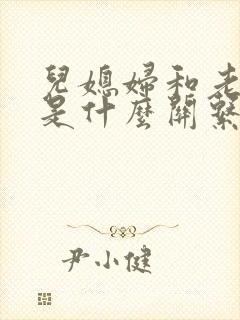 兒媳婦和老
是什麼關繫
尹小健